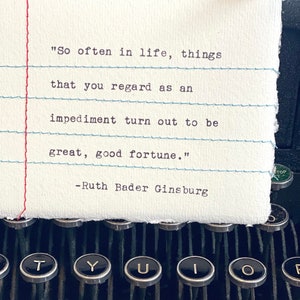 "So often in life, things
that you regard as an
impediment turn out to be
great, good fortune."
-Ruth Bader Ginsburg
T Y U I O P